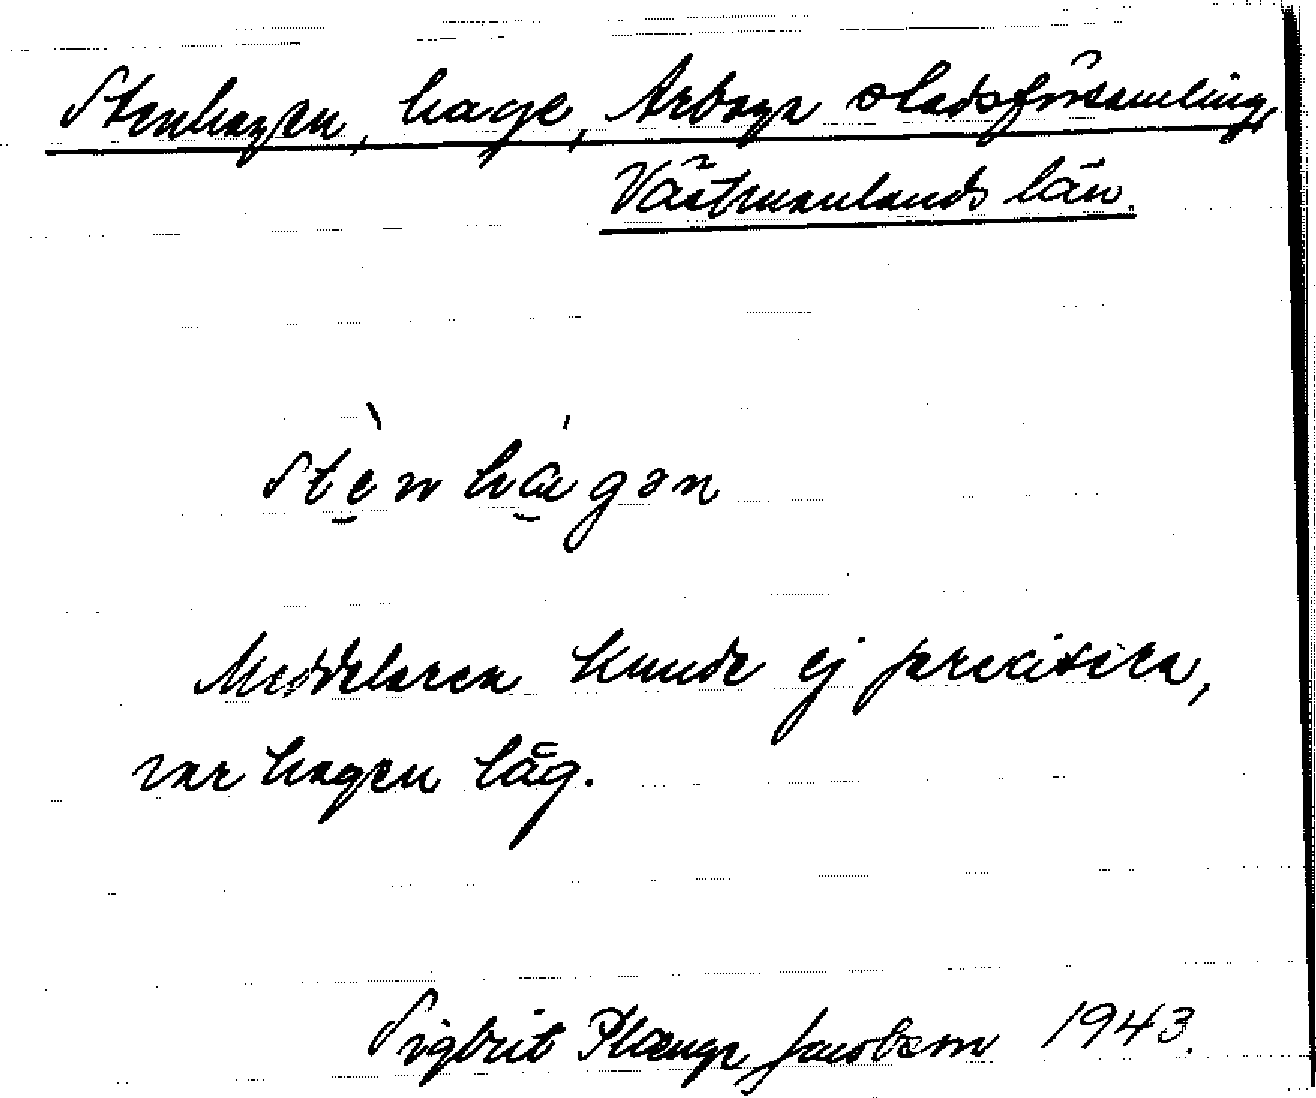 Stenhagen, hage, Arboga stadsförsamling,
Västmanlands län.
stè̱nhá̱gən
Meddelaren kunde ej precisera,
var hagen låg.
Sigbrit Plænge Jacobson 1943.